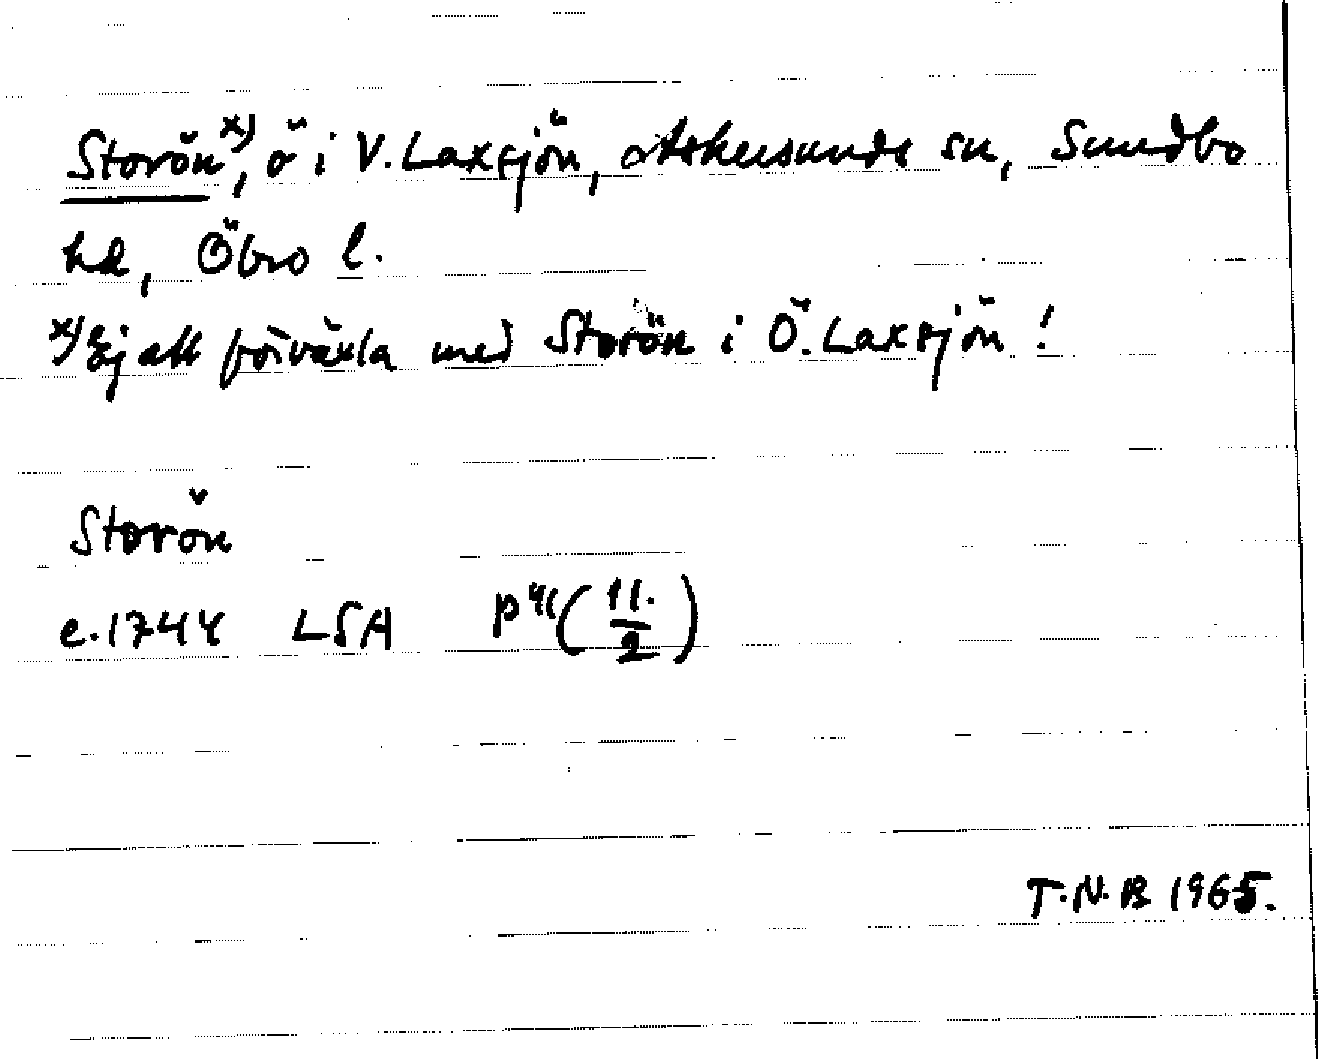 Storön x), ö i V. Laxsjön, Askersunds sn, Sundbo
hd, Öbro l.
x) Ej att förväxla med Storön i Ö. Laxsjön!
Storön
c. 1744 LSA P 41 (11. / 2)
T.N.B 1965.